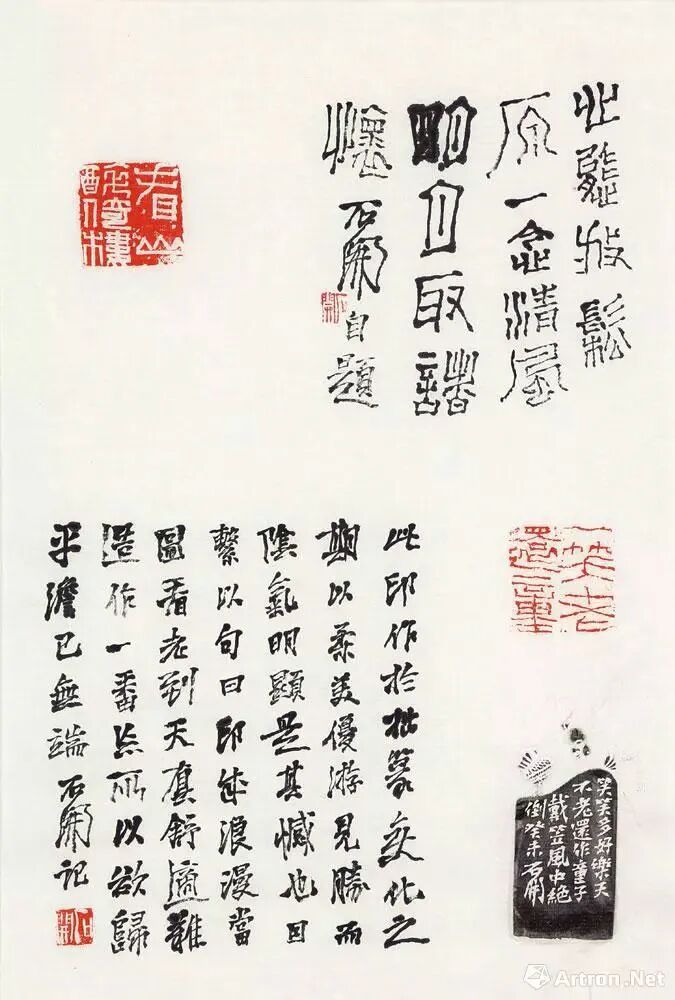 此放鬆
原一念清風
明月取諧
懷 石開自題
看山
此印作於篆变化之
期以柔美優游見勝而
陰氣明顯是其憾也因
繫以句曰印浪漫當
圖看老到天真舒適難
造作一番然所以欲歸
平澹已無端 石開記
石開
一笑老
還童
笑笑多好樂天
不老還作童子
戴笠風中絕
倒癸未石開
Artron.Net